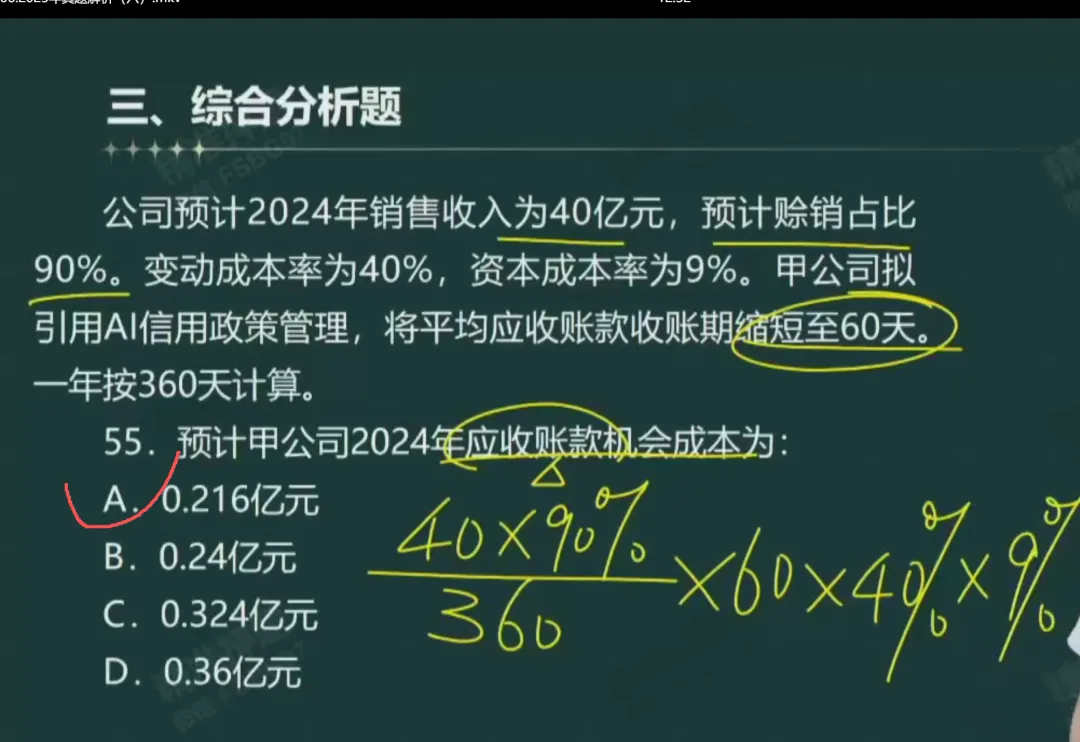 三、综合分析题
公司预计2024年销售收入为40亿元，预计赊销占比
90%。变动成本率为40%，资本成本率为9%。甲公司拟
引用AI信用政策管理，将平均应收账款收账期缩短至60天。
一年按360天计算。
55．预计甲公司2024年应收账款机会成本为：
A．0.216亿元
B．0.24亿元
C．0.324亿元
D．0.36亿元
40×90%
360
×60×40%×9%